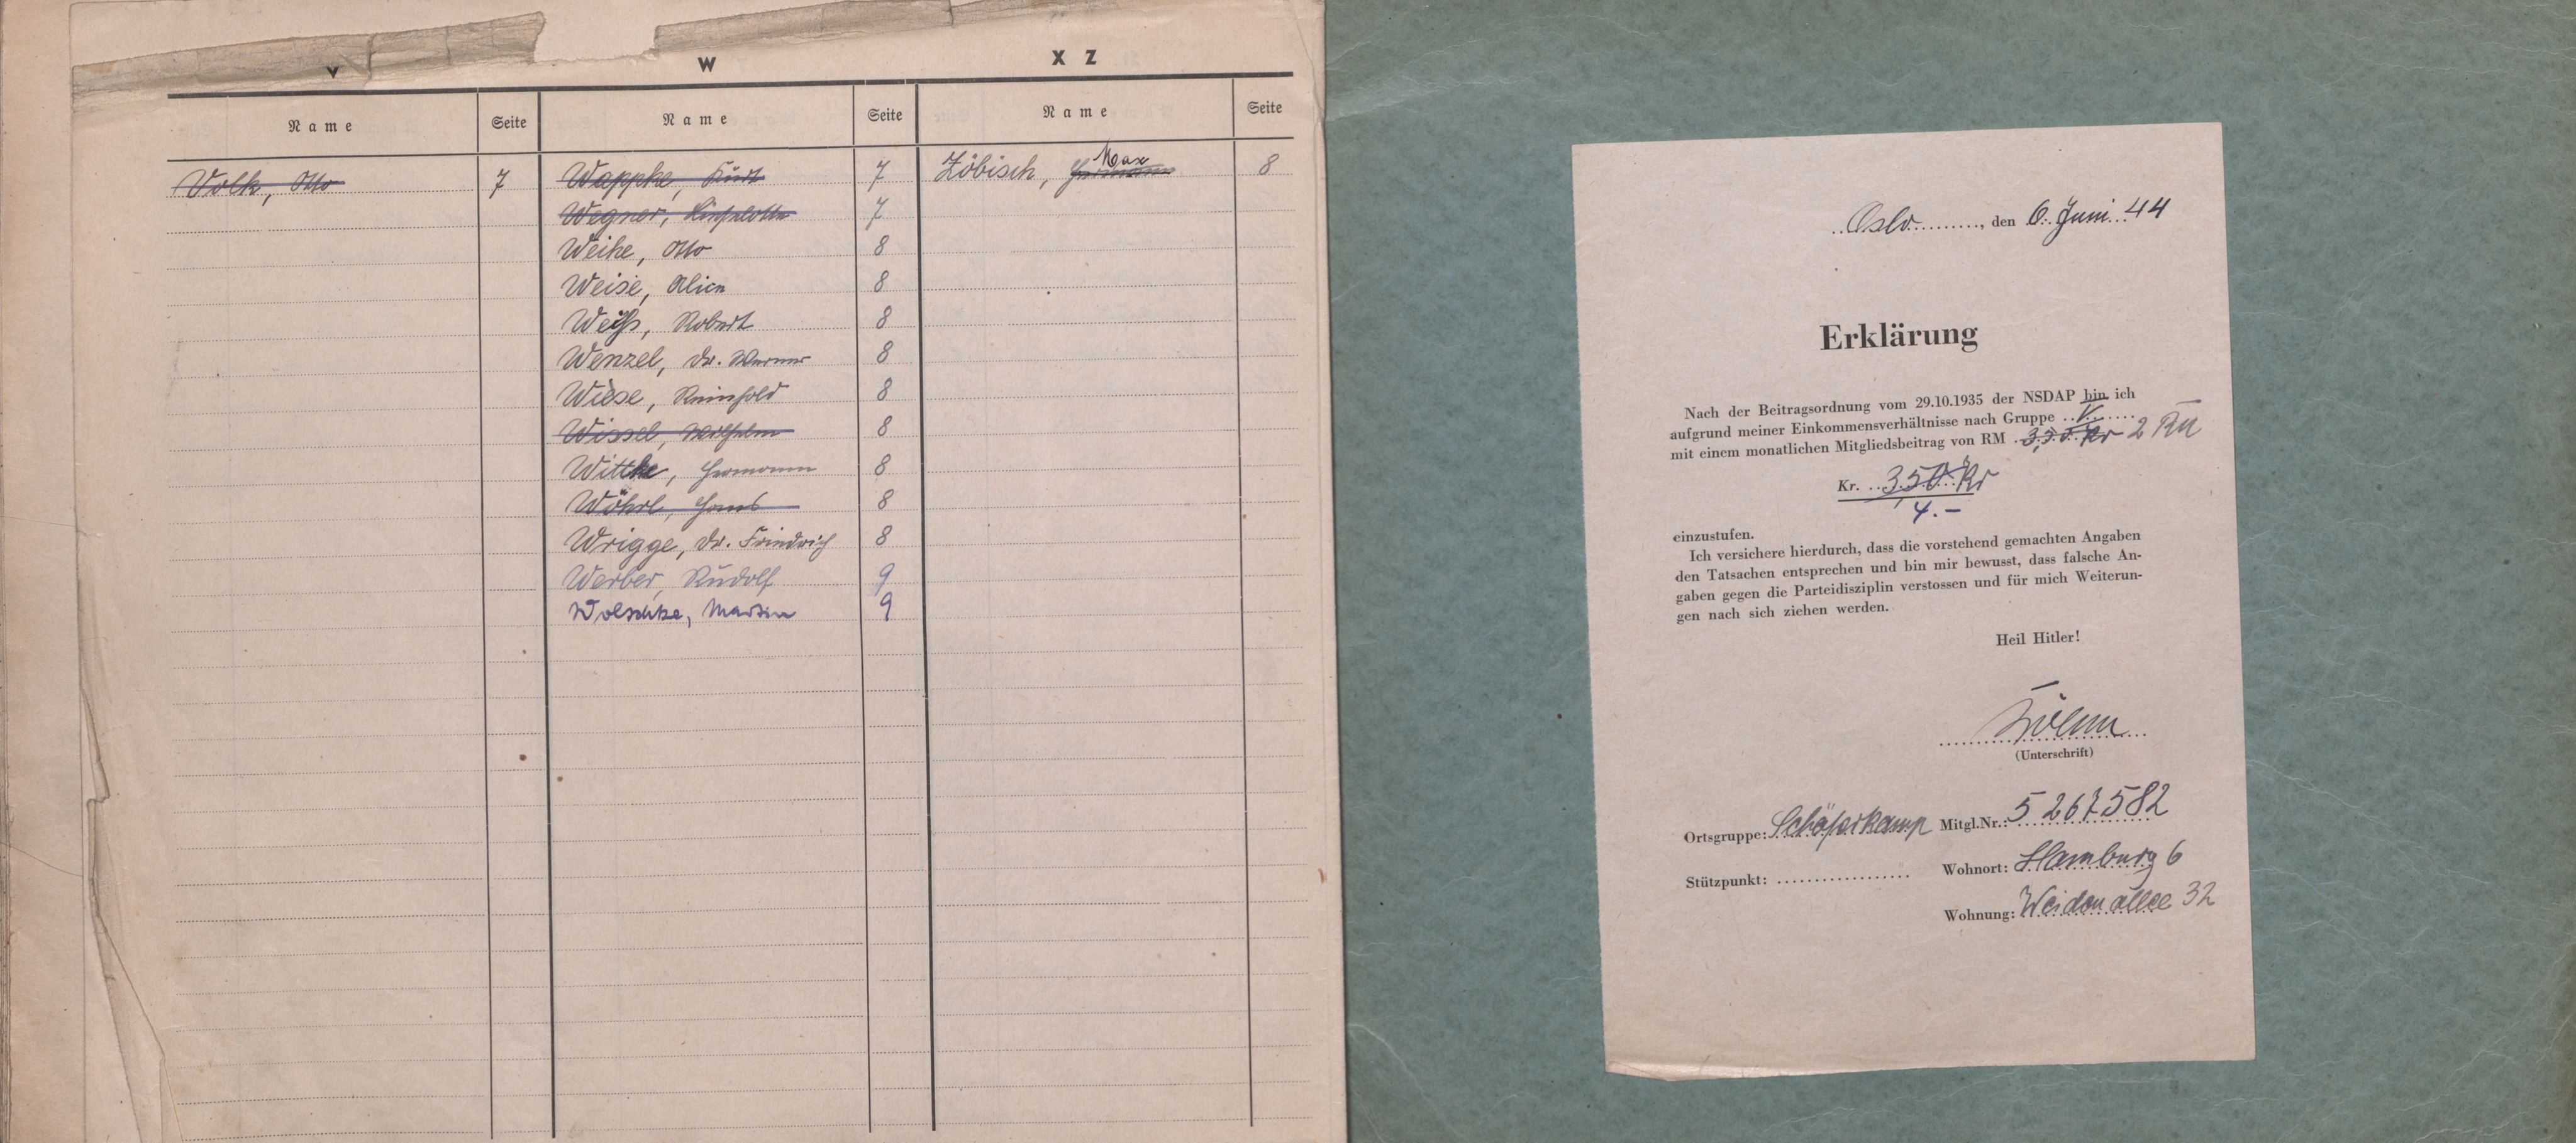 V
Name Seite
Volk, Otto 7
W
Name Seite
Wappke, Kurt 7
Wegner, Liselotte 7
Weike, Otto 8
Weise, Alice 8
Weiß, Robert 8
Wenzel, Dr. Werner 8
Wiese, Reinhold 8
Wissel, Wilhelm 8
Wittke, Hermann 8
Wöhrl, Hans 8
Wrigge, Dr. Friedrich 8
Werber, Rudolf 9
Wolschke, Martin 9
X Z
Name Seite
Max
Zöbisch, Hermann 8
Oslo, den 6. Juni 44
Erklärung
Nach der Beitragsordnung vom 29.10.1935 der NSDAP bin ich
aufgrund meiner Einkommensverhältnisse nach Gruppe V
mit einem monatlichen Mitgliedsbeitrag von RM 3,50 Kr 2 RM
Kr. 3,50 Kr
4.-
einzustufen.
Ich versichere hierdurch, dass die vorstehend gemachten Angaben
den Tatsachen entsprechen und bin mir bewusst, dass falsche An-
gaben gegen die Parteidisziplin verstossen und für mich Weiterun-
gen nach sich ziehen werden.
Heil Hitler!
(Unterschrift)
Ortsgruppe: Schäferkamp Mitgl.Nr.: 5 267 582
Stützpunkt: Wohnort: Hamburg 6
Wohnung: Weidenallee 32